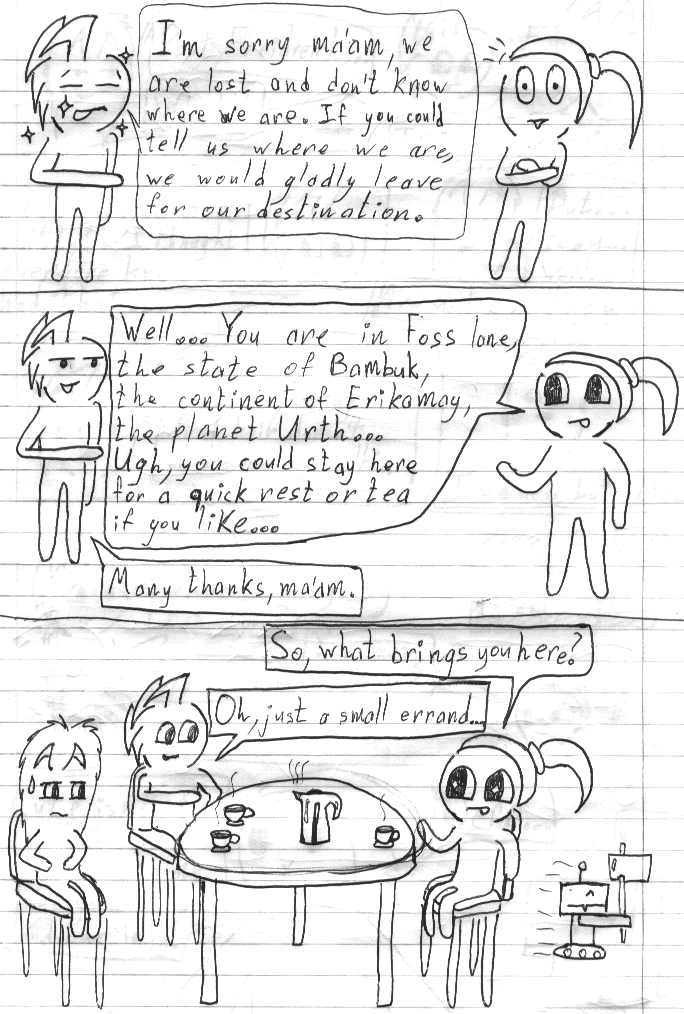 I'm sorry ma'am, we
are lost and don't know
where we are. If you could
tell us where we are,
we would gladly leave
for our destination.
Well... You are in Foss lane,
the state of Bambuk,
the continent of Erikamay,
the planet Urth...
Ugh, you could stay here
for a quick rest or tea
if you like...
Many thanks, ma'am.
So, what brings you here?
Oh, just a small errand...